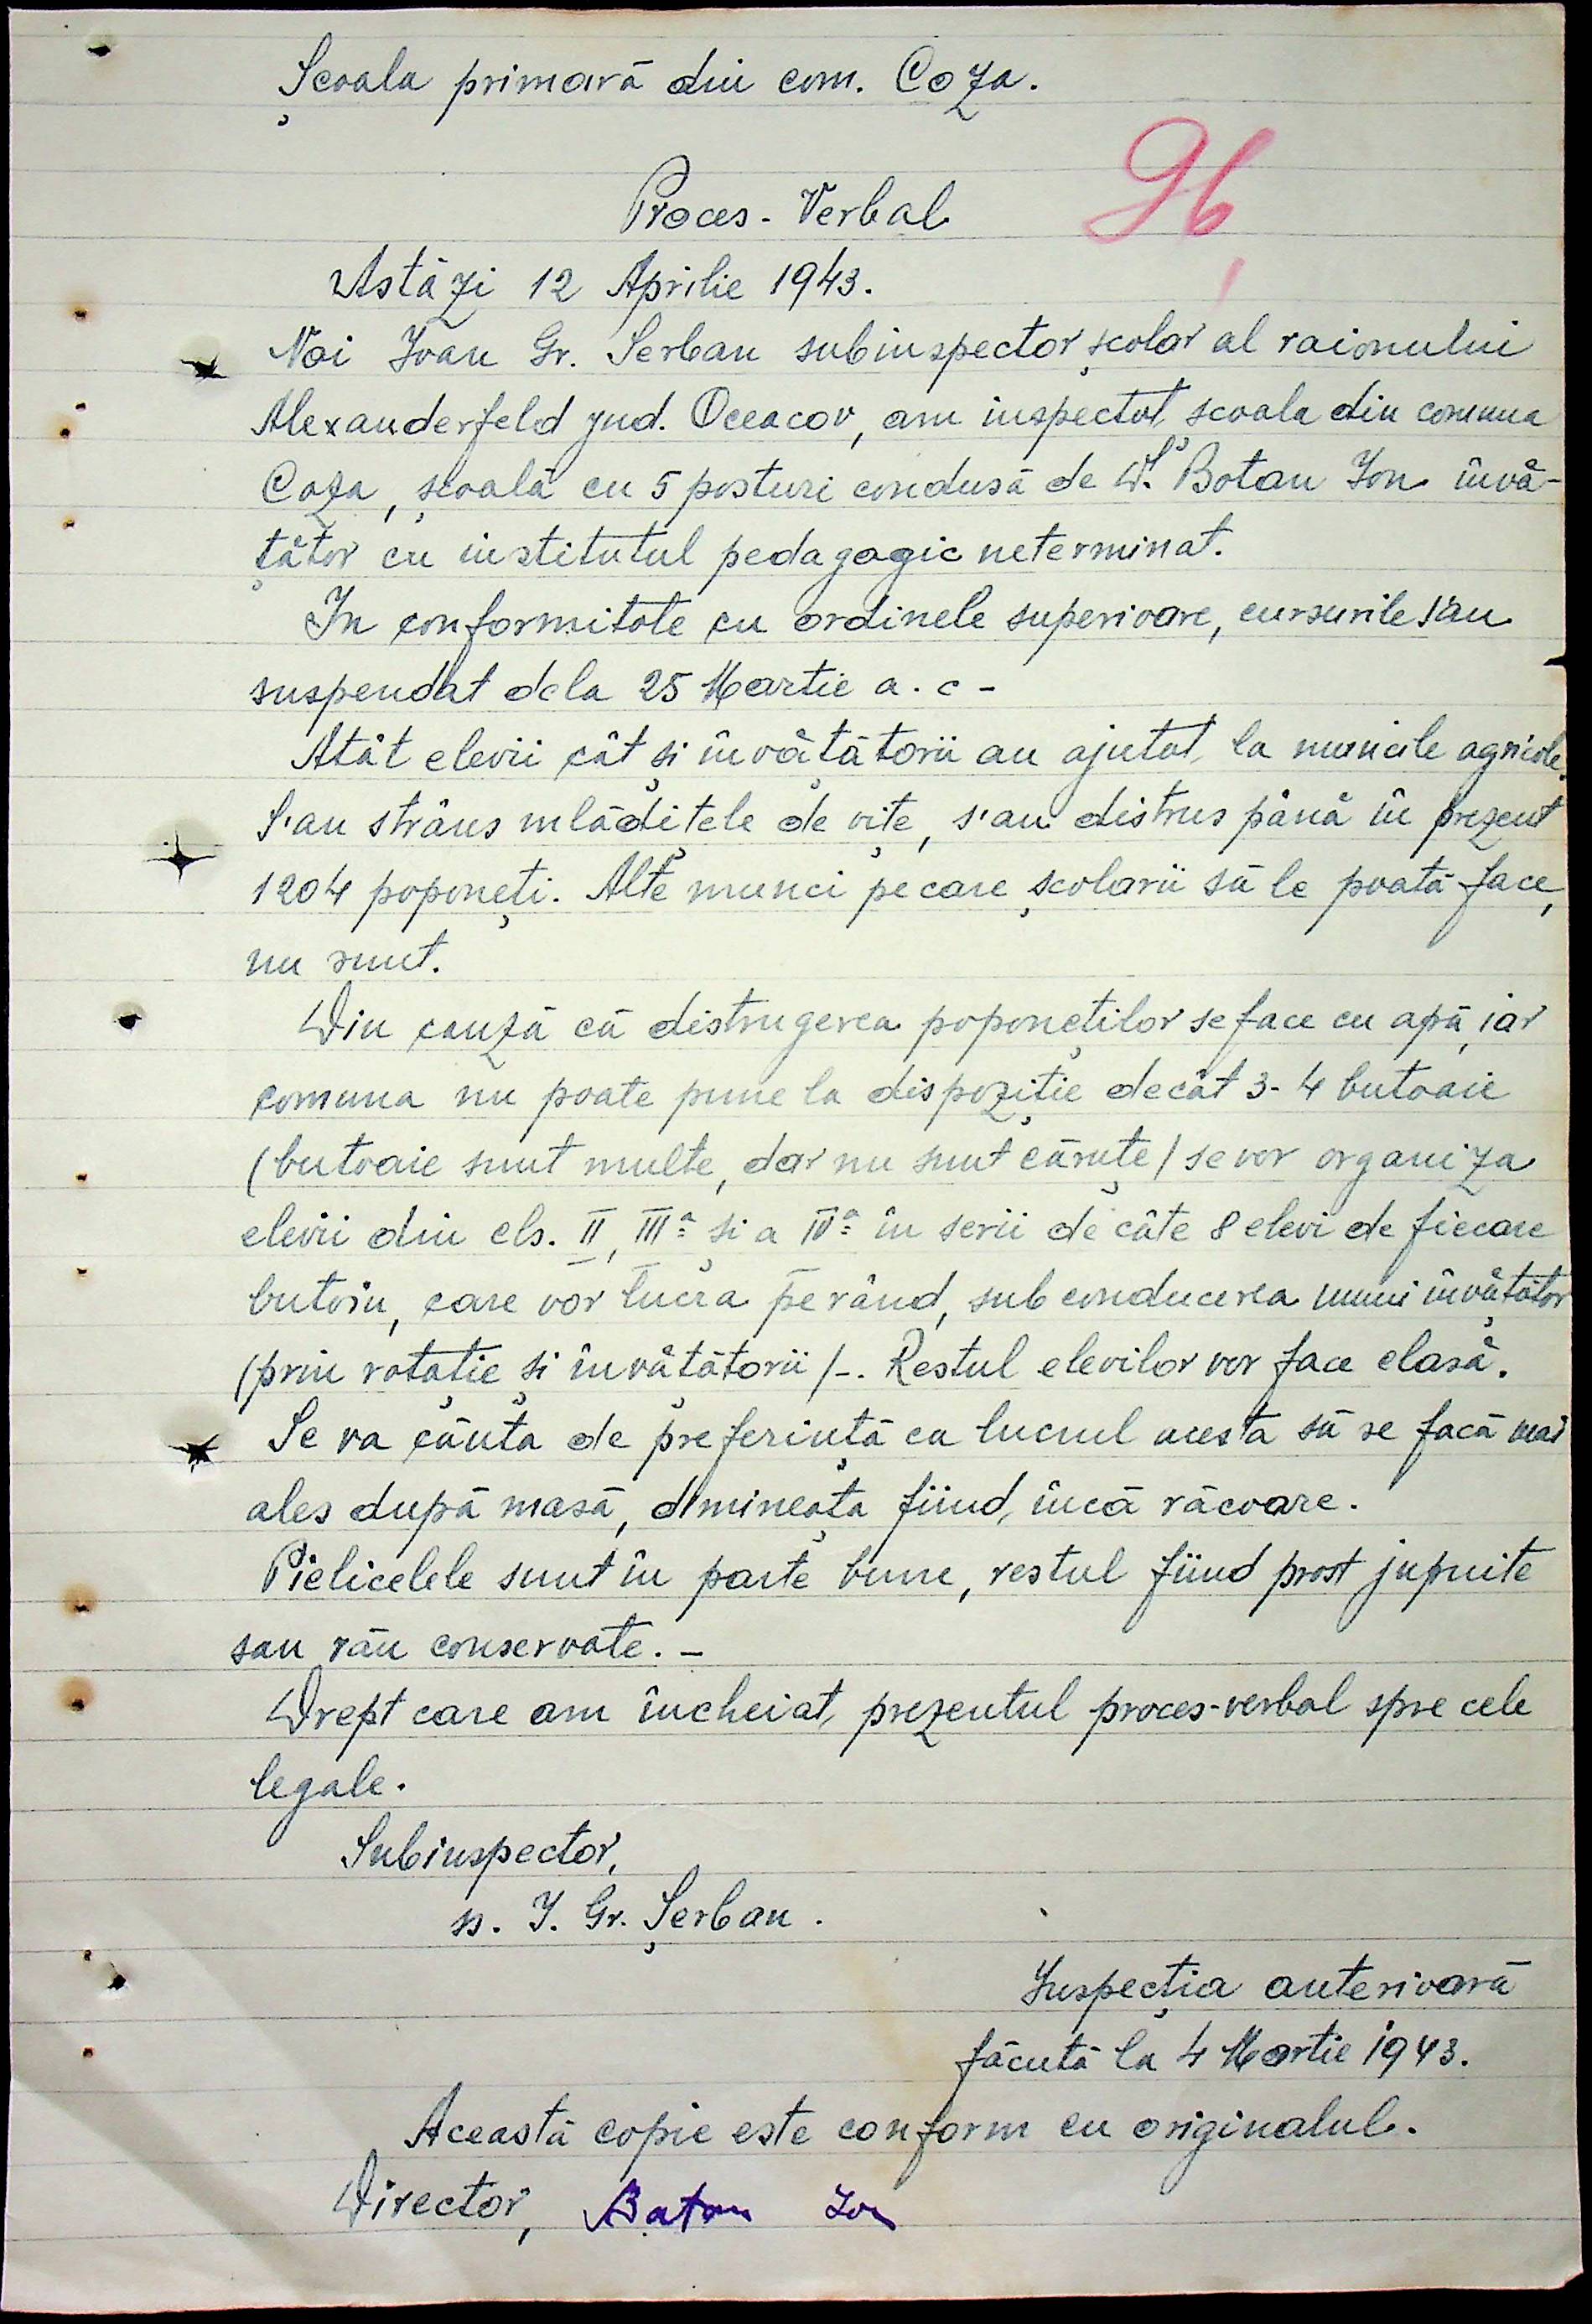 Școala primară din com. Coza.
96
Proces-Verbal
Astăzi 12 Aprilie 1943.
Noi Ioan Gr. Serban subinspector școlar al raionului
Alexanderfeld jud. Oceacov, am inspectat școala din comuna
Coza, școală cu 5 posturi condusă de Dl. Botan Ion învă-
țător cu institutul pedagogic neterminat.
In conformitate cu ordinele superioare, cursurile s'au
suspendat dela 25 Martie a.c-
Atât elevii cât și învățătorii au ajutat la muncile agricole.
S'au strâns mlădițele de vițe, s'au distrus până în prezent
1204 poponeți. Alte munci pe care școlarii să le poată face,
nu sunt.
Din cauză că distrugerea poponeților se face cu apă, iar
comuna nu poate pune la dispoziție decât 3-4 butoaie
(butoaie sunt multe, dar nu sunt căruțe/ se vor organiza
elevii din cls. II, IIIª și a IVª în serii de câte 8 elevi de fiecare
butoiu, care vor lucra pe rând, sub conducerea unui învățător
(prin rotație și învățătorii/-. Restul elevilor vor face clasă.
Se va căuta de preferință ca lucrul acesta să se facă mai
ales după masă, dimineața fiind, încă răcoare.
Pielicelele sunt în parte bune, restul fiind prost jupuite
sau rău conservate.-
Drept care am încheiat, prezentul proces-verbal spre cele
legale.
Subinspector,
ss. I. Gr. Șerban.
Inspecția anterioară
făcută la 4 Martie 1943.
Această copie este conform cu originalul.
Director, Batan Ion